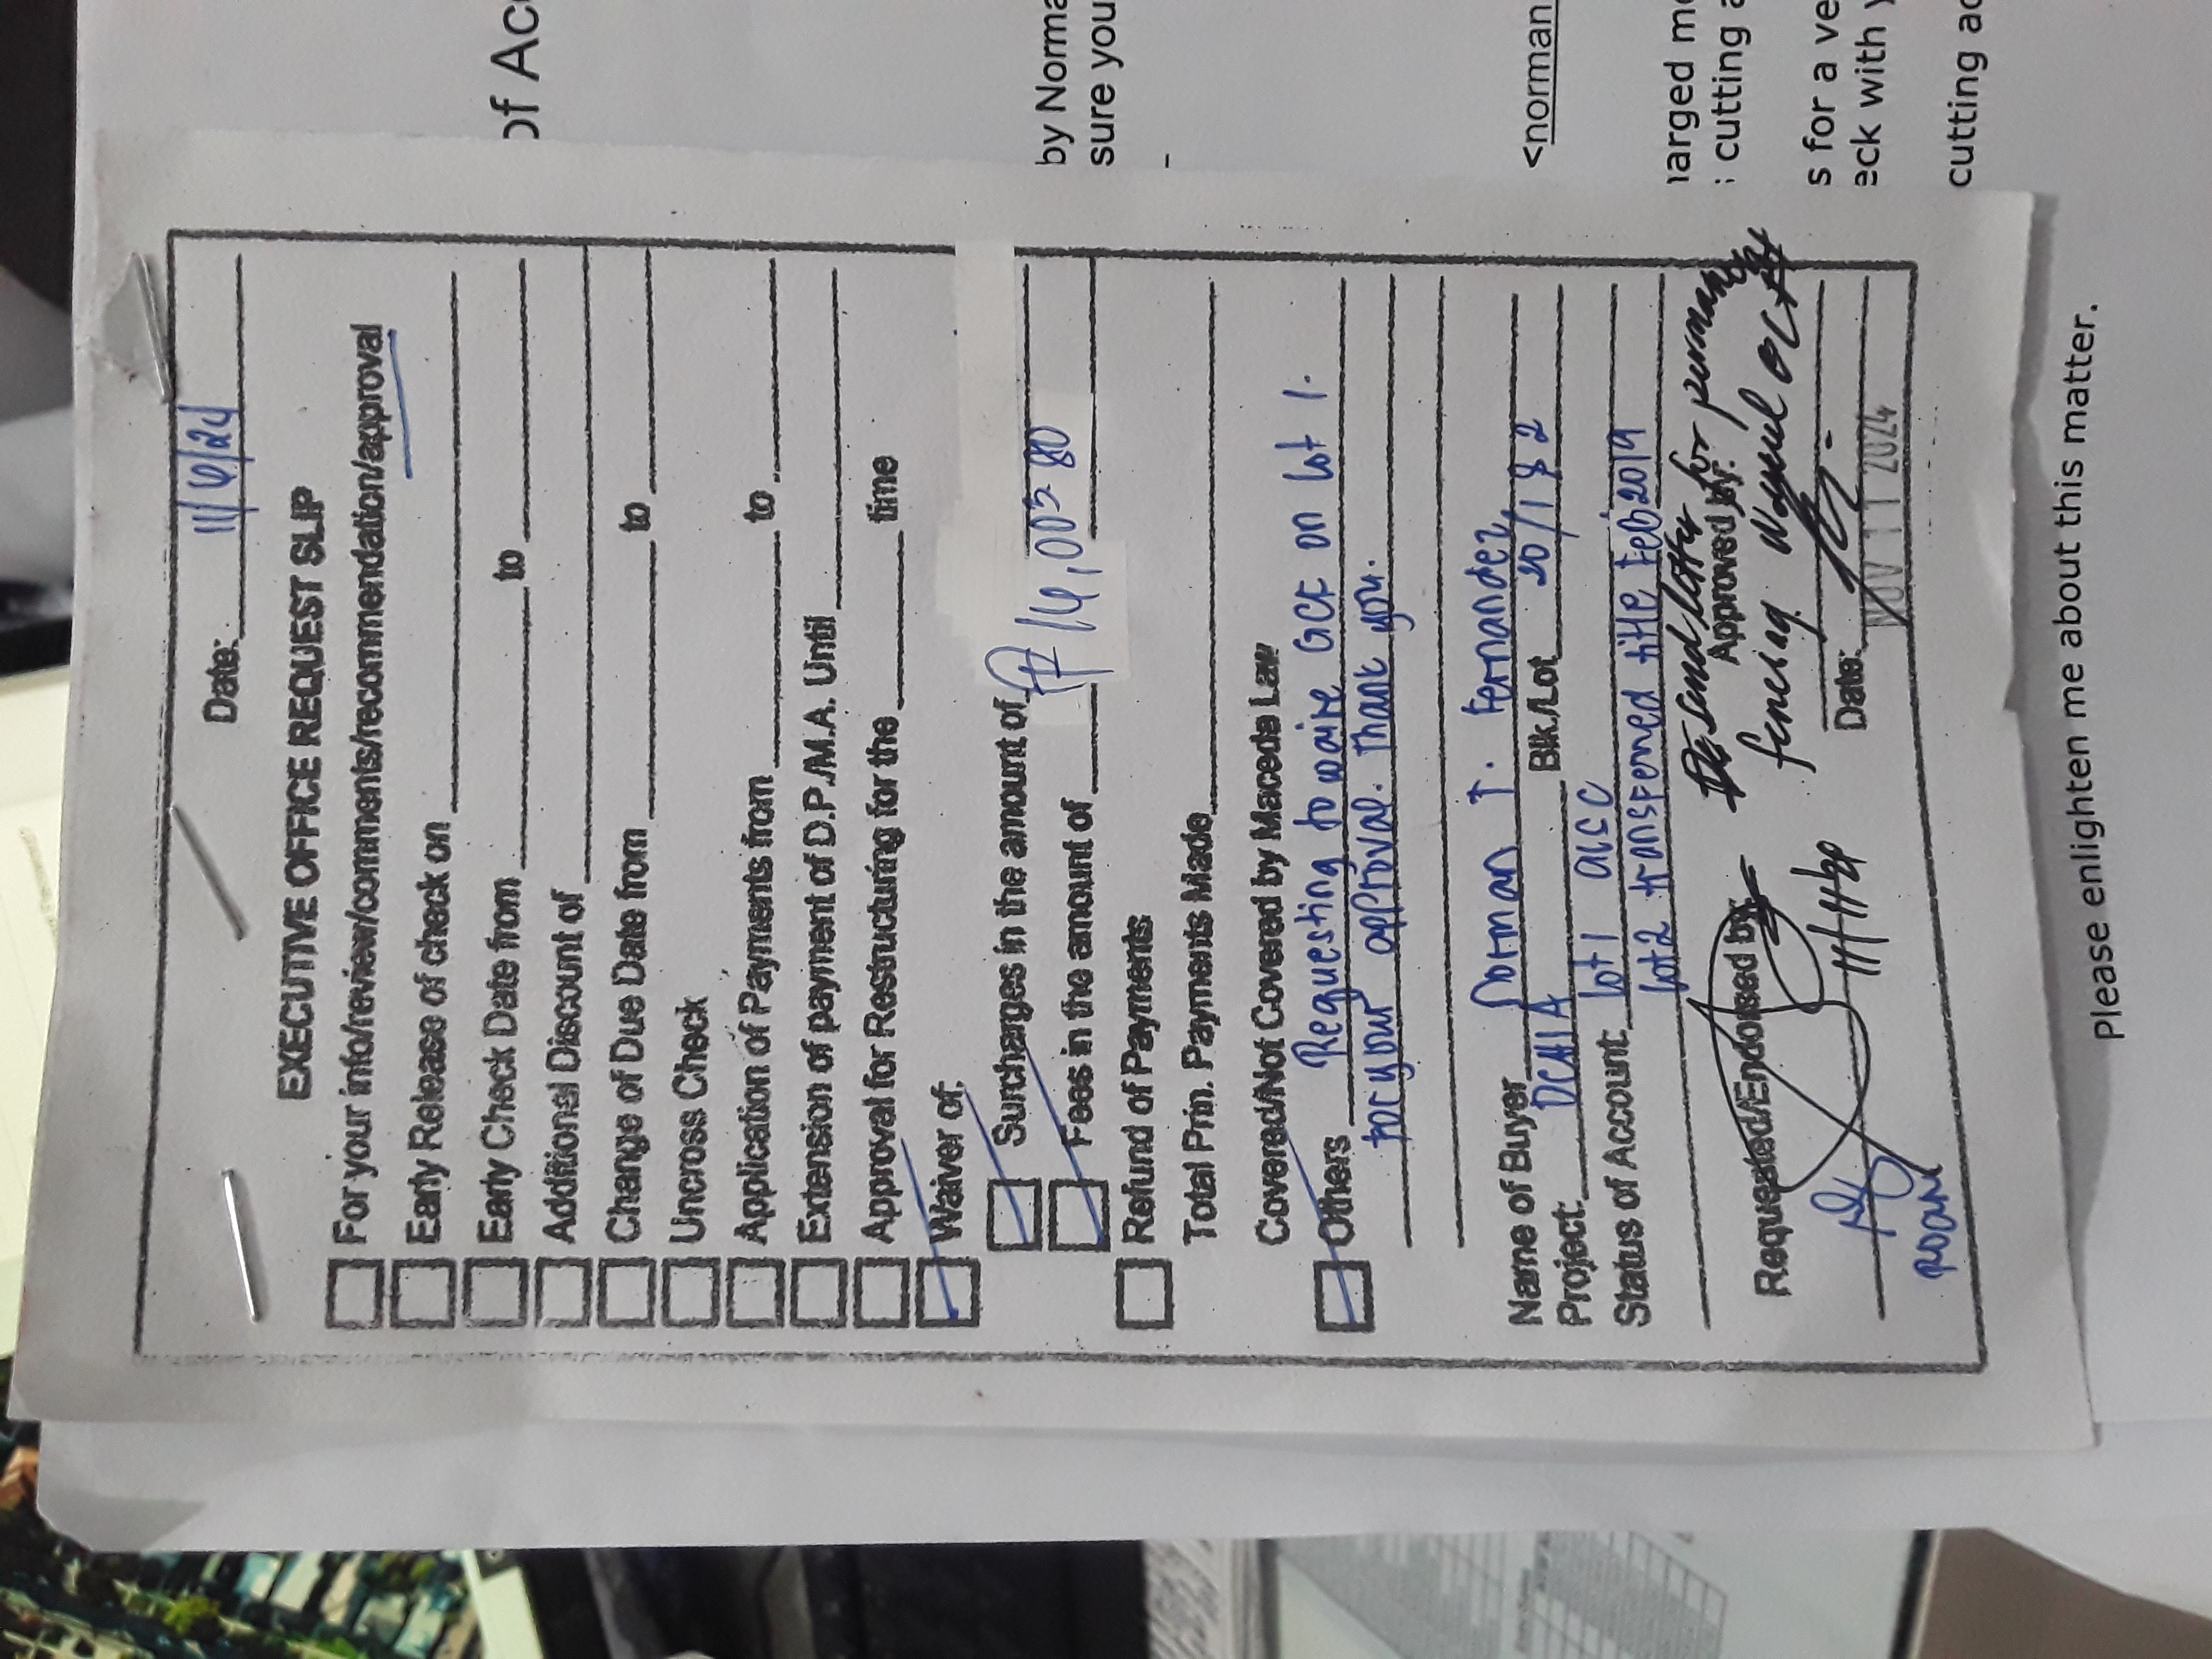 Date: 11/6/24
EXECUTIVE OFFICE REQUEST SLIP
For your info/review/comments/recommendation/approval
Early Release of check on
Early Check Date from to
Additional Discount of
Change of Due Date from to
Uncross Check
Application of Payments from to
Extension of payment of D.P./M.A. Until
Approval for Restructuring for the time
Waiver of:
Surcharges in the amount of
Fees in the amount of ₱ 16,003.80
Refund of Payments
Total Prin. Payments Made
Covered/Not Covered by Maceda Law
Others Requesting to waive GCF on lot 1.
For your approval. Thank you.
Name of Buyer Norman T. Fernandez
Project: DCHIA Blk./Lot 20/1 & 2
Status of Account: lot 1
lot 2 transferred title Feb 2019
send letter for permanent
Requested/Endorsed by: Approved by:
fencing
11/11/24
Date:
NOV 11 2024
of Acc
by Norma
sure you
-
<norman
harged me
cutting a
s for a ve
eck with y
cutting ac
Please enlighten me about this matter.